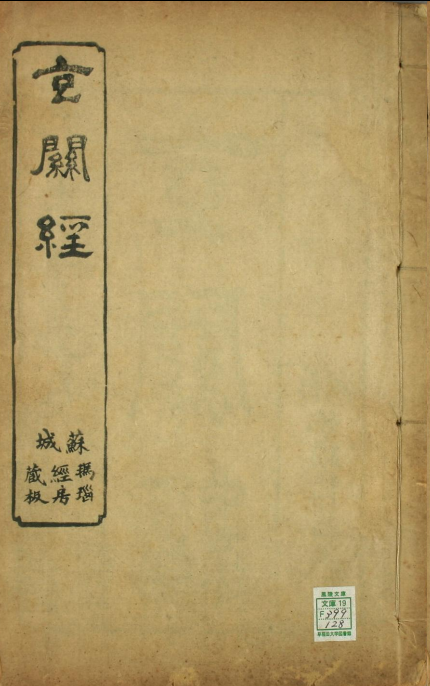 玄關經
蘇城
瑪瑙
經房
藏板
風陵文庫
文庫 19
F 399
128
早稲田大学図書館